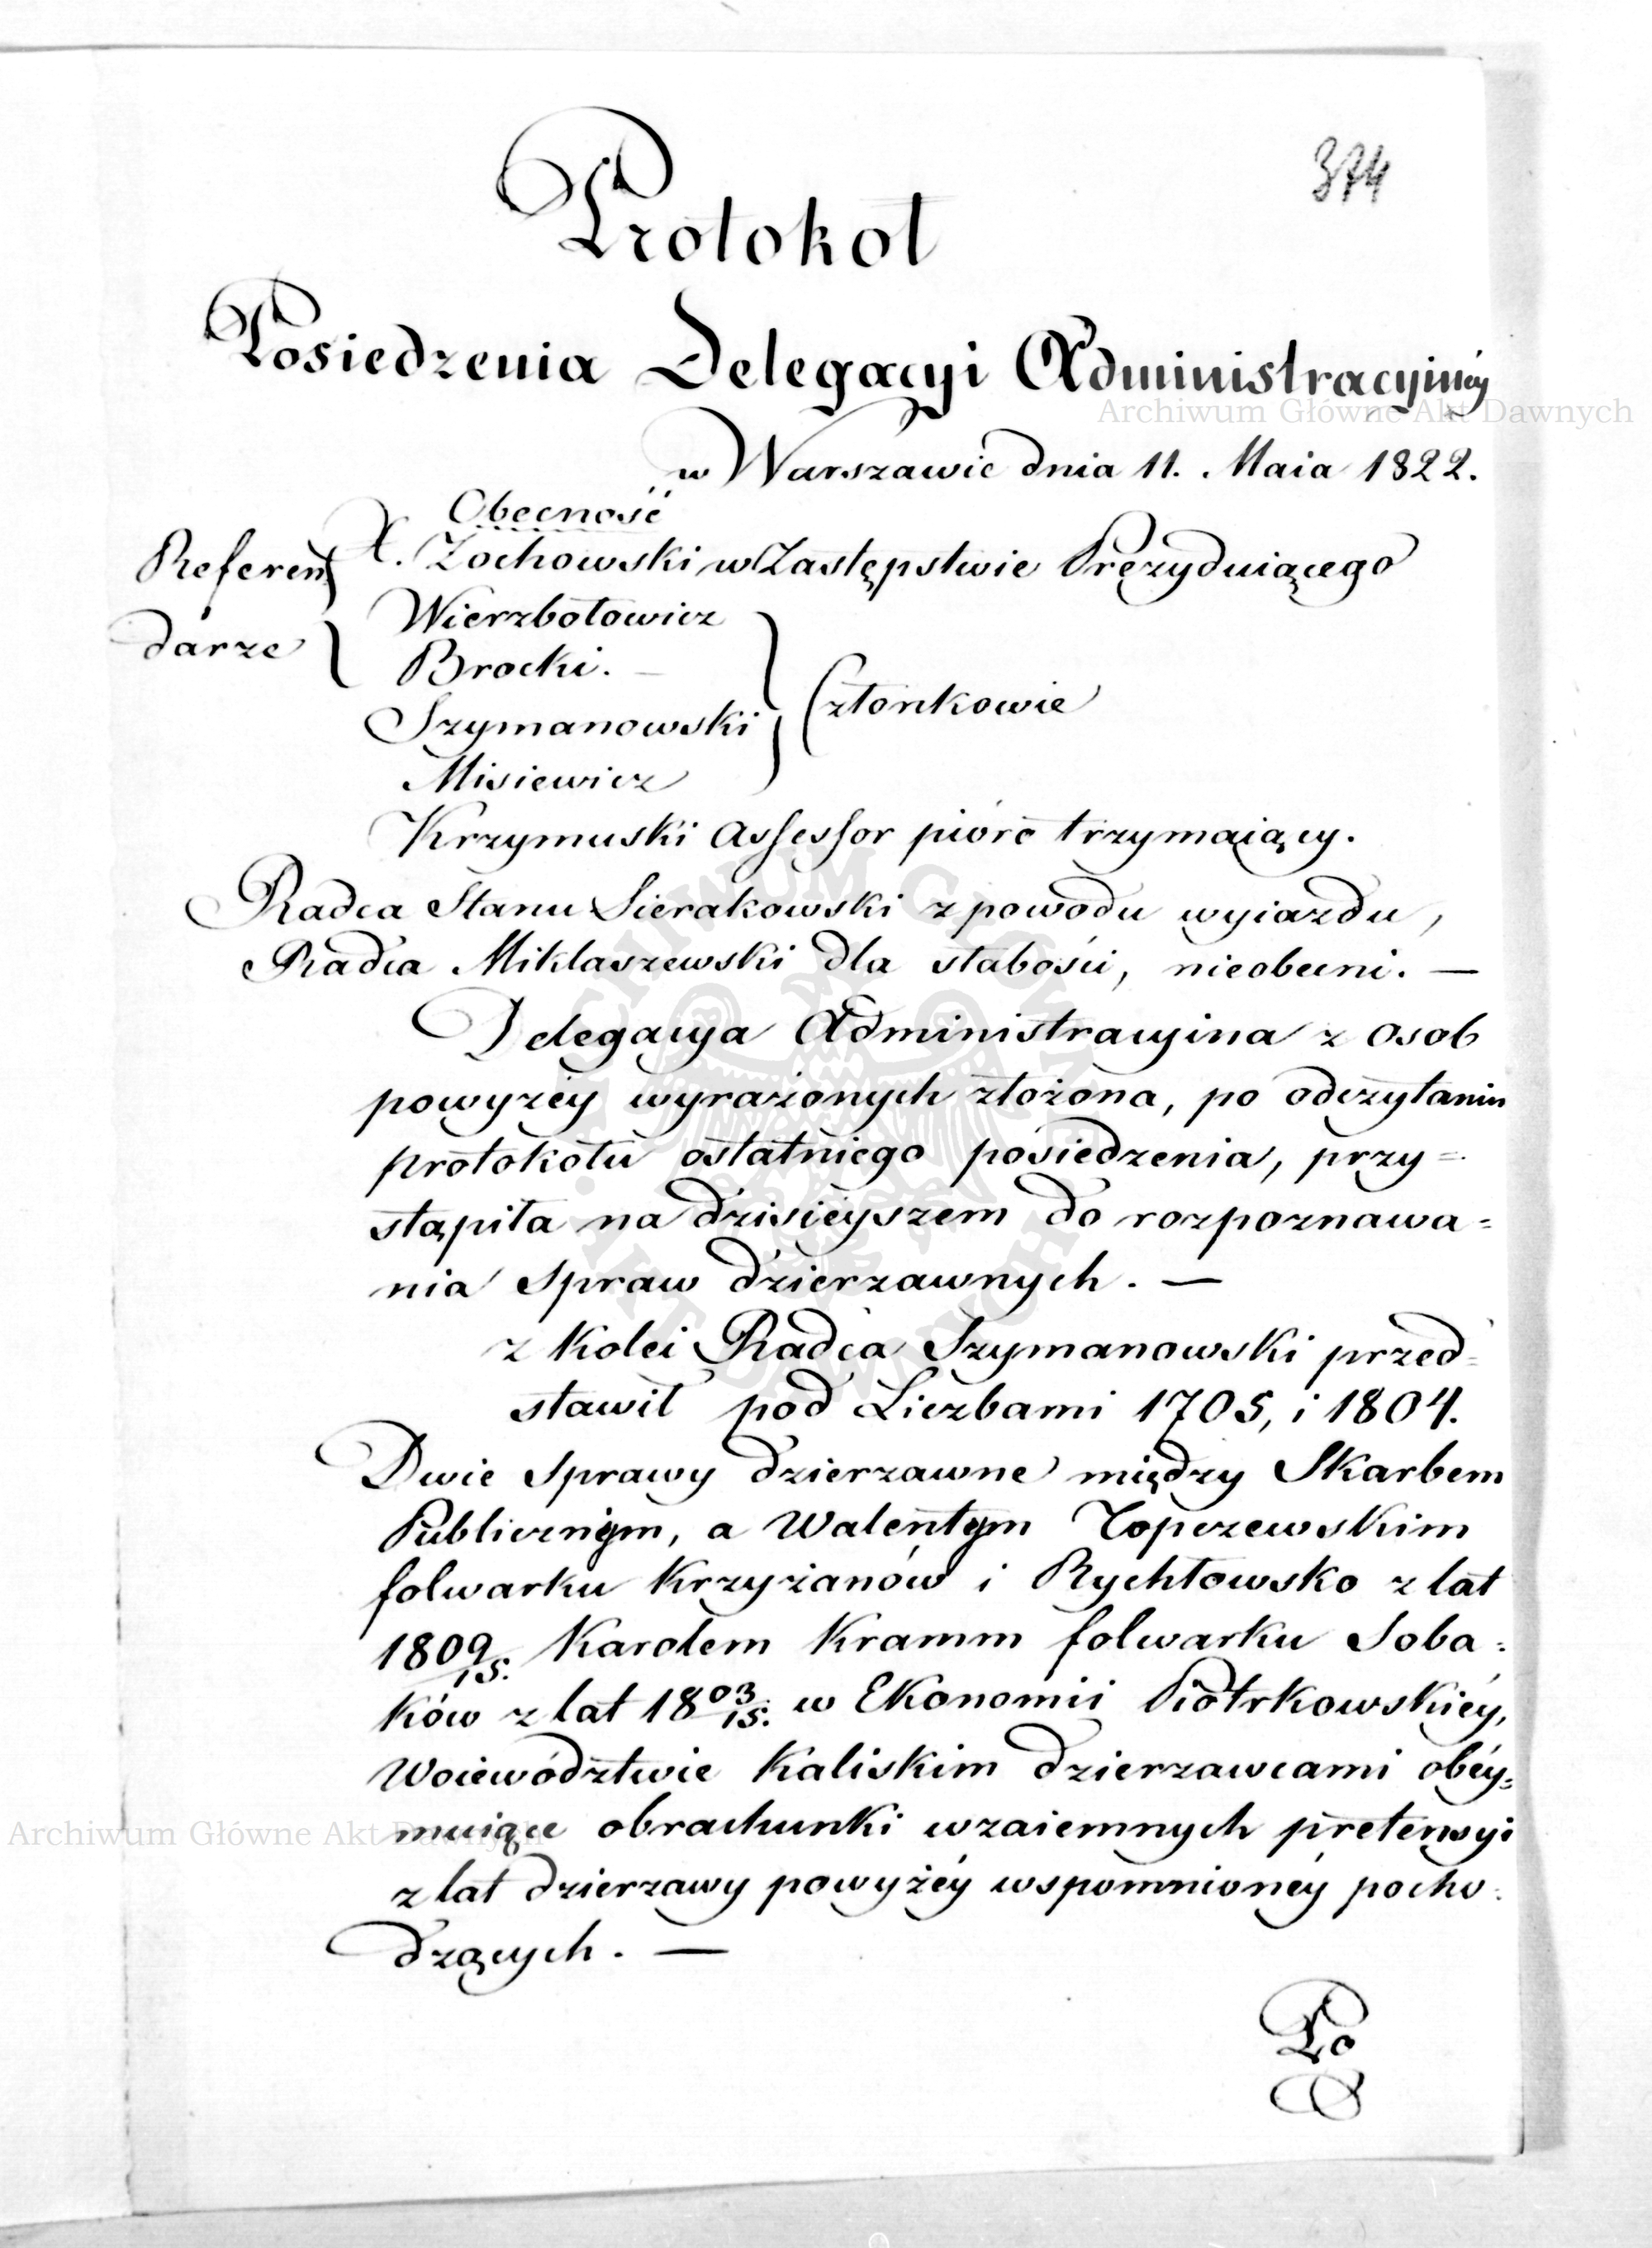 374
Protokoł
Posiedzenia Delegacyi Administracyinéy
w Warszawie dnia 11. Maia 1822.
Obecność
X. Żochowski w Zastępstwie Prezyduiącego
Referen
darze
Wierzbołowicz
Brocki. —
Szymanowski
Członkowie
Misiewicz
Krzymuski Assessor pióro trzymaiący.
Radca Stanu Sierakowski z powodu wyiazdu,
Radca Miklaszewski dla słabości, nieobecni. —
Delegacya Administracyina z osob
powyżey wyrażonych złożona, po odczytaniu
protokołu ostatniego posiedzenia, przy=
stąpiła na dzisieyszem do rozpoznawa=
nia spraw dzierzawnych. —
z kolei Radca Szymanowski przed=
stawił pod Liczbami 1705, i 1804.
Dwie sprawy dzierzawne między Skarbem
Publicznym, a Walentym Topczewskim
folwarku Krzyżanów i Rychłowsko z lat
1809/15. Karolem Kramm folwarku Soba=
ków z lat 1803/15. w Ekonomii Piotrkowskiéy,
Woiewództwie Kaliskim dzierzawcami obéy=
muiące obrachunki wzaiemnych pretensyi
z lat dzierzawy powyżéy wspomnionéy pocho=
dzących. —
Po
Archiwum Główne Akt Dawnych
Archiwum Główne Akt Dawnych
ARCHIWUM GŁÓWNE AKT DAWNYCH